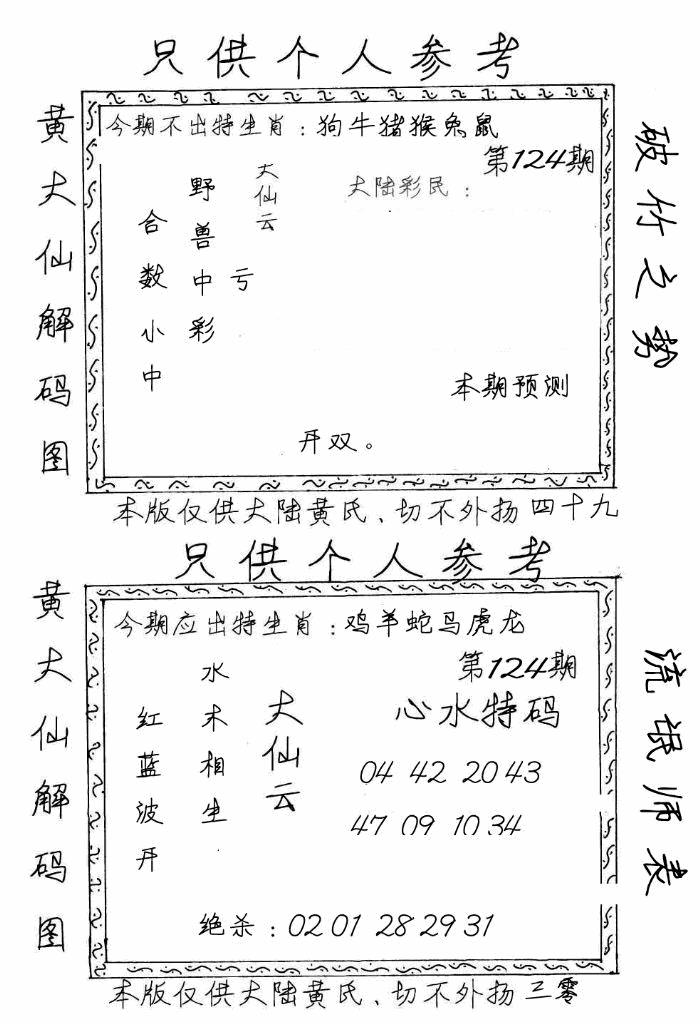 只供个人参考
黄大仙解码图
今期不出特生肖：狗牛猪猴兔鼠
第124期
大陆彩民：
大仙云
野兽中彩
亏
合数小中
本期预测
开双。
破竹之势
本版仅供大陆黄氏、切不外扬四十九
只供个人参考
黄大仙解码图
今期应出特生肖：鸡羊蛇马虎龙
第124期
心水特码
大仙云
水木相生
红蓝波开
04 42 20 43
47 09 10 34
绝杀：02 01 28 29 31
流氓师表
本版仅供大陆黄氏、切不外扬三零